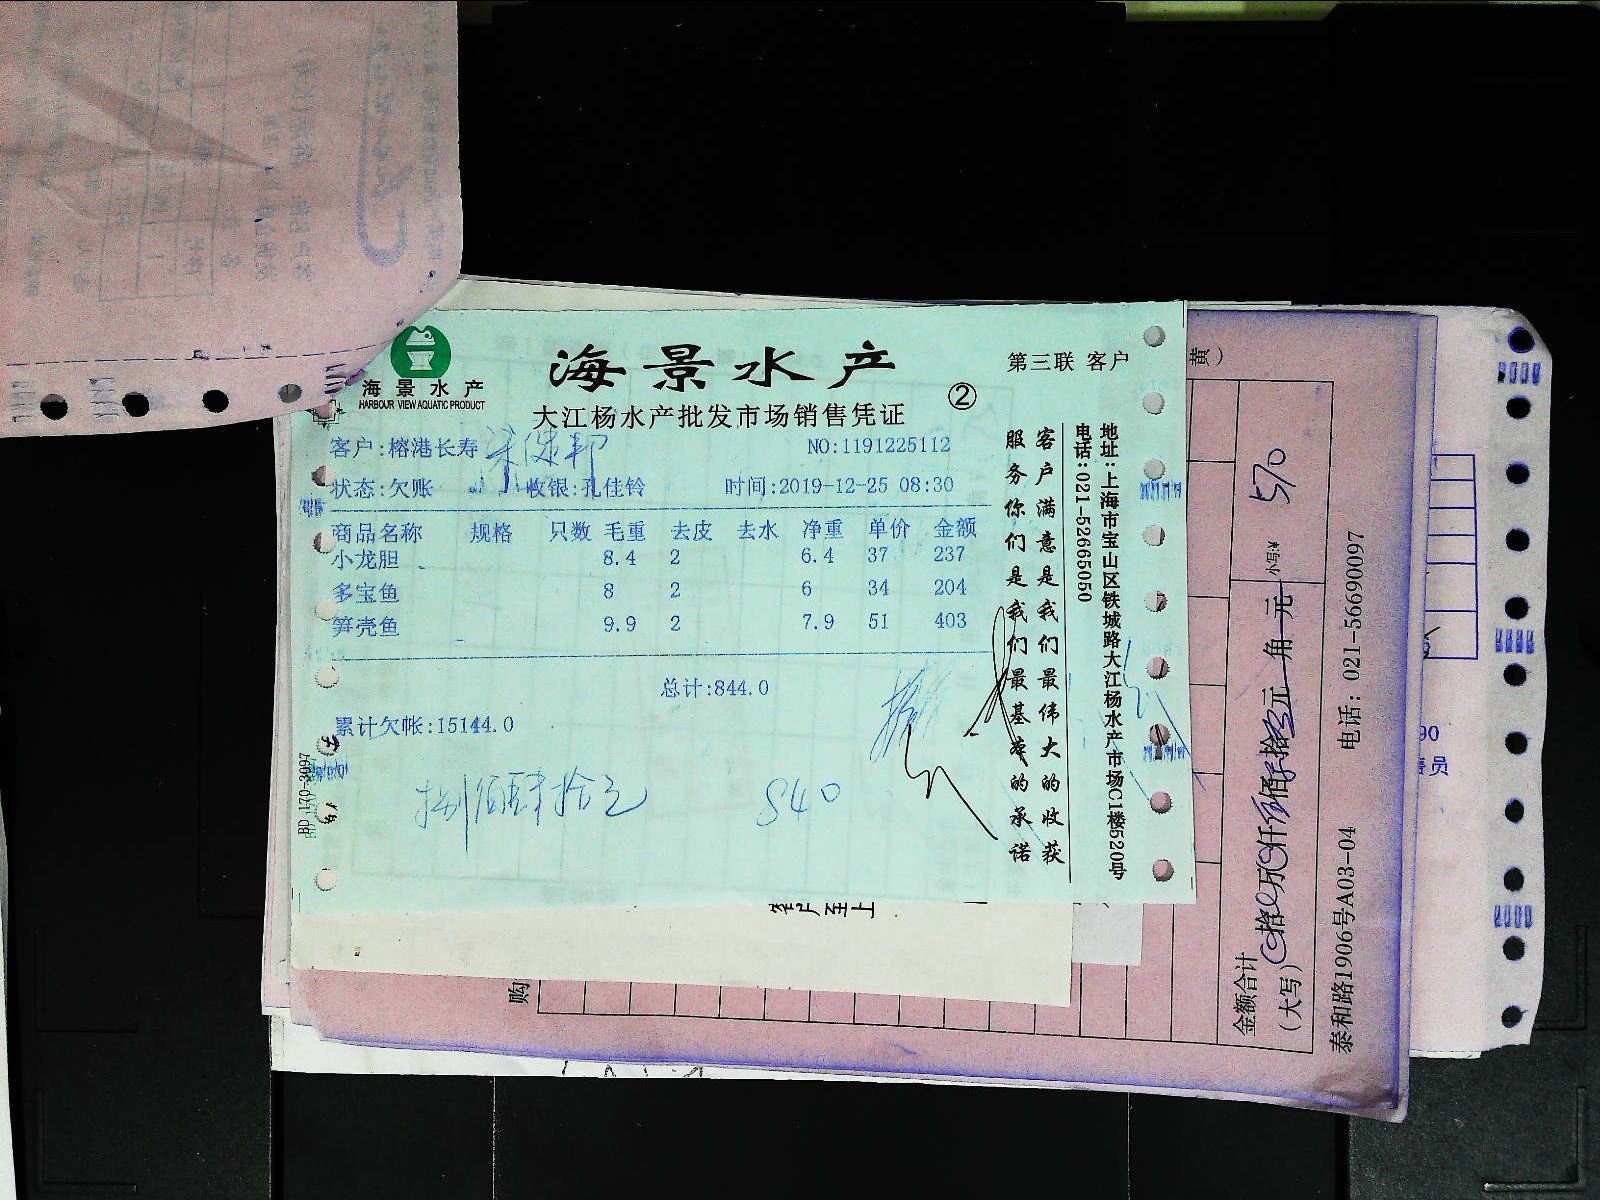 海景水产
HARBOUR VIEW AQUATIC PRODUCT
海景水产
第三联 客户
②
大江杨水产批发市场销售凭证
客户:榕港长寿
NO:1191225112
状态:欠账 收银:孔佳铃 时间:2019-12-25 08:30
商品名称 规格 只数 毛重 去皮 去水 净重 单价 金额
小龙胆 8.4 2 6.4 37 237
多宝鱼 8 2 6 34 204
笋壳鱼 9.9 2 7.9 51 403
总计:844.0
累计欠帐:15144.0
捌佰肆拾元 840
客户满意是我们最伟大的收获
服务你们是我们最基本的承诺
地址:上海市宝山区铁城路大江杨水产市场C1楼520号
电话:021-52665050
客户至上
黄)
购
金额合计
(大写) 拾 万 仟 佰 拾 元 角 元 小写:¥ 570
泰和路1906号A03-04 电话:021-56690097
90
售员